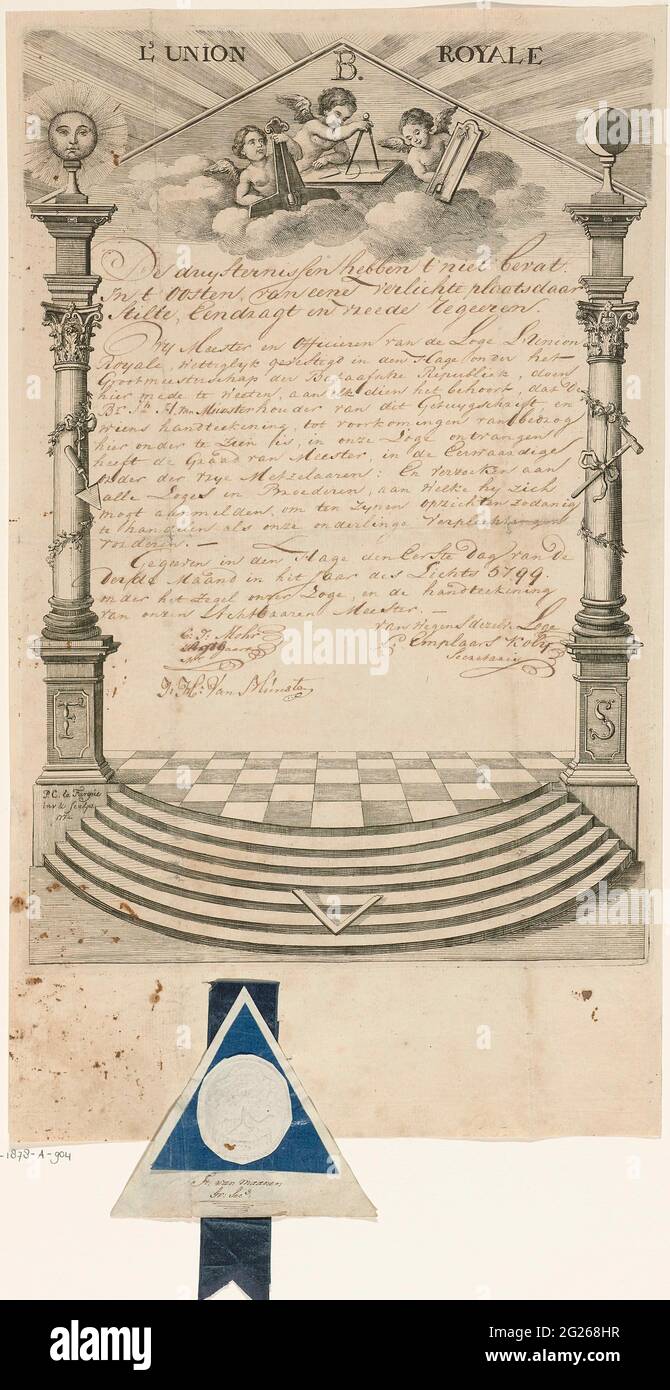 L'UNION B. ROYALE
De duysternissen hebben t' niet bevat.
In t' Oosten, van eene verlichte plaats daar
Stilte, Eendragt en vreede regeeren.
Wy Meester en Officieren van de Loge L'Union
Royale, wettiglyk gevestegd in den Hage onder het
Grootmeesterschap der Bataafsche Republiek, doen
hier mede te weeten, aan elk dien het behoort, dat De
Br. A. van Munster houder van dit Getuygschrift, en
wiens handteekening, tot voorkomingen van bedrog
hier onder te zien is, in onze Loge ontvangen
heeft de Graad van Meester, in de Eerwaardige
order der vrye Metzelaaren: En verzoeken aan
alle Loges en Broederen, aan welke hy zich
mogt aanmelden, om ten zynen opzichten zodanig
te handelen als onze onderlinge verplichtingen
vorderen. —
Gegeven in den Hage den Eerste Dag van De
Derde Maand in het Jaar des Lichts 5799.
onder het zegel onzer Loge, en de handteekening
van onzen Achtbaaren Meester. —
van wegens dezelve Loge
C. F. Mohr
Secretaris
Van Munster
F S
P.C. la Fargue
inv. & sculps.
177
Fr. van Maanen
Gr. Sec.
-1878-A-904
alamy
Image ID: 2G268HR
www.alamy.com